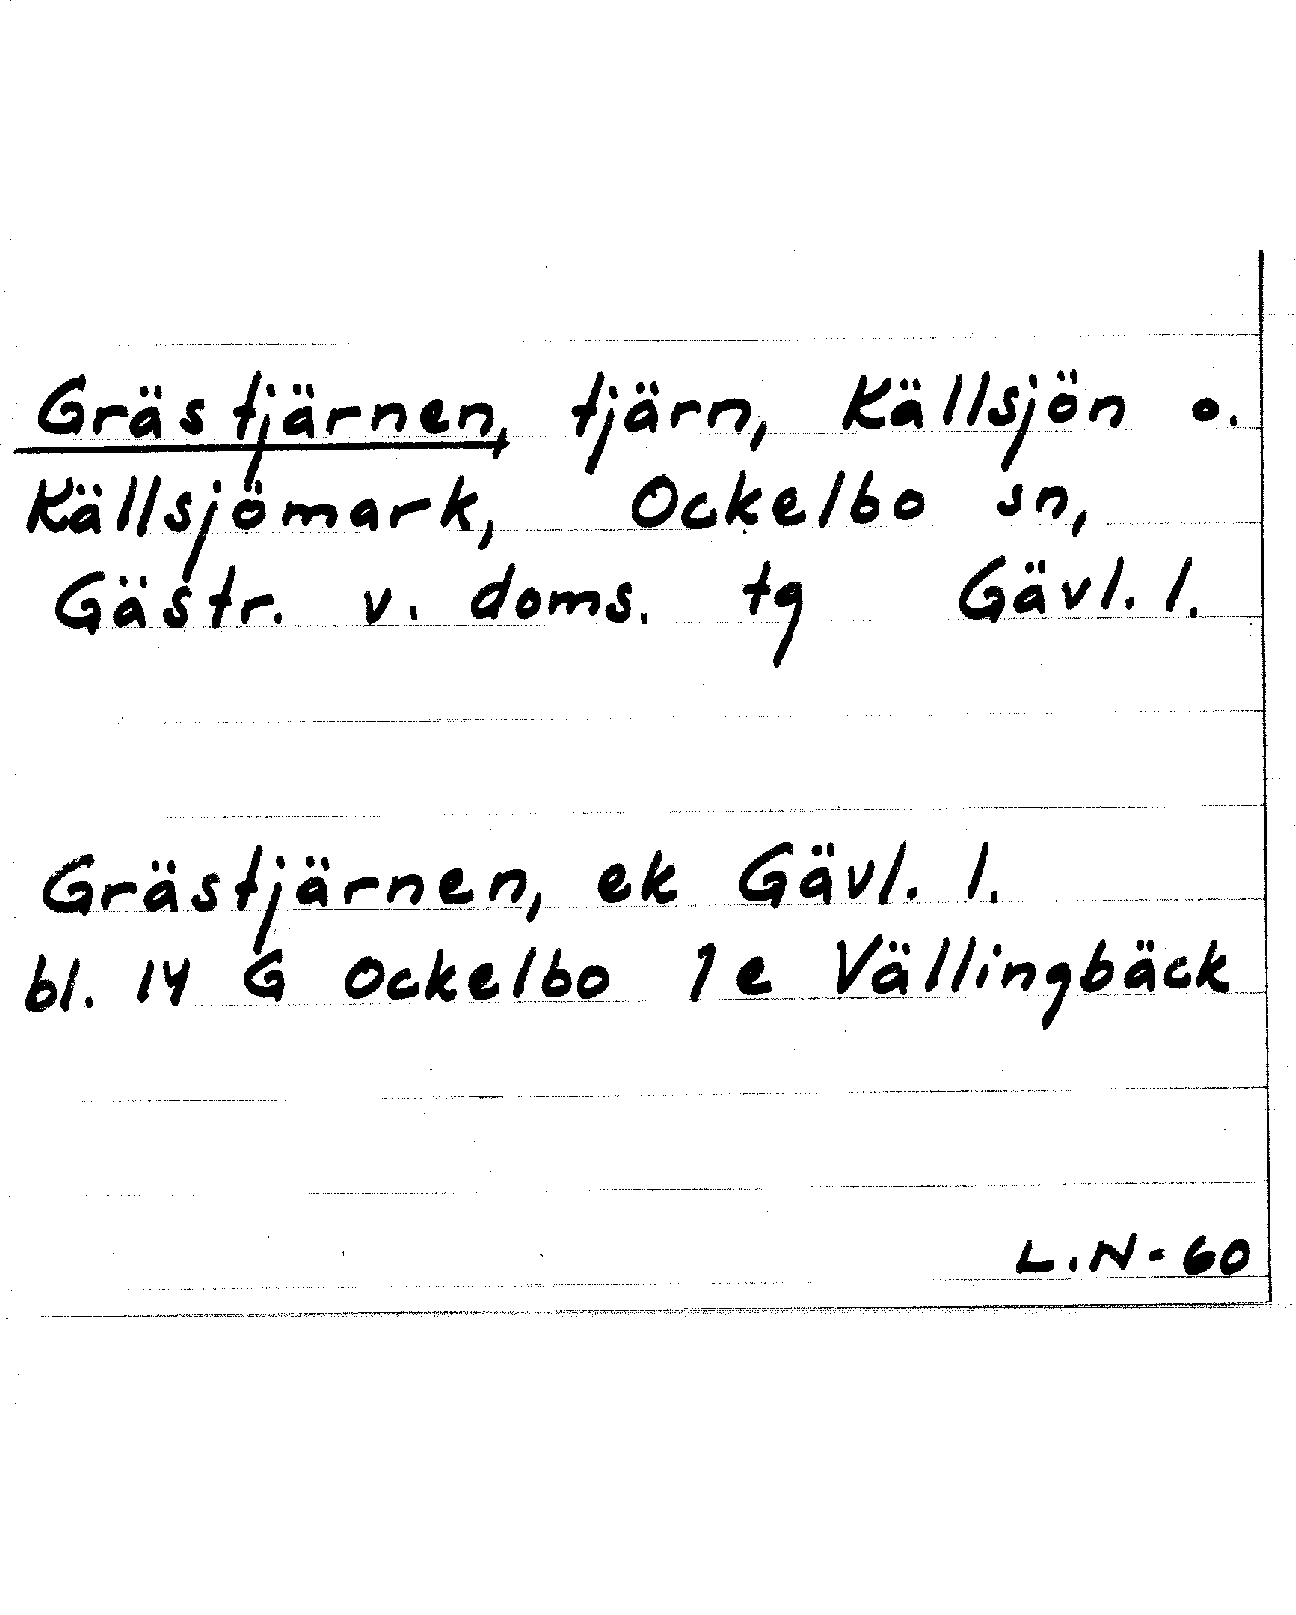 Grästjärnen, tjärn, Källsjön o.
Källsjömark, Ockelbo sn,
Gästr. v. doms. tg Gävl. l.
Grästjärnen, ek Gävl. l.
bl. 14 G Ockelbo 1e Vällingbäck
L.N-60